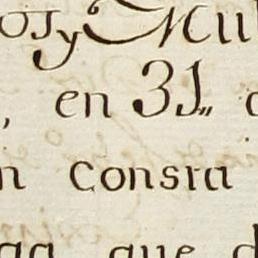 os y Mu
, en 31,, 
n consta
ga que d